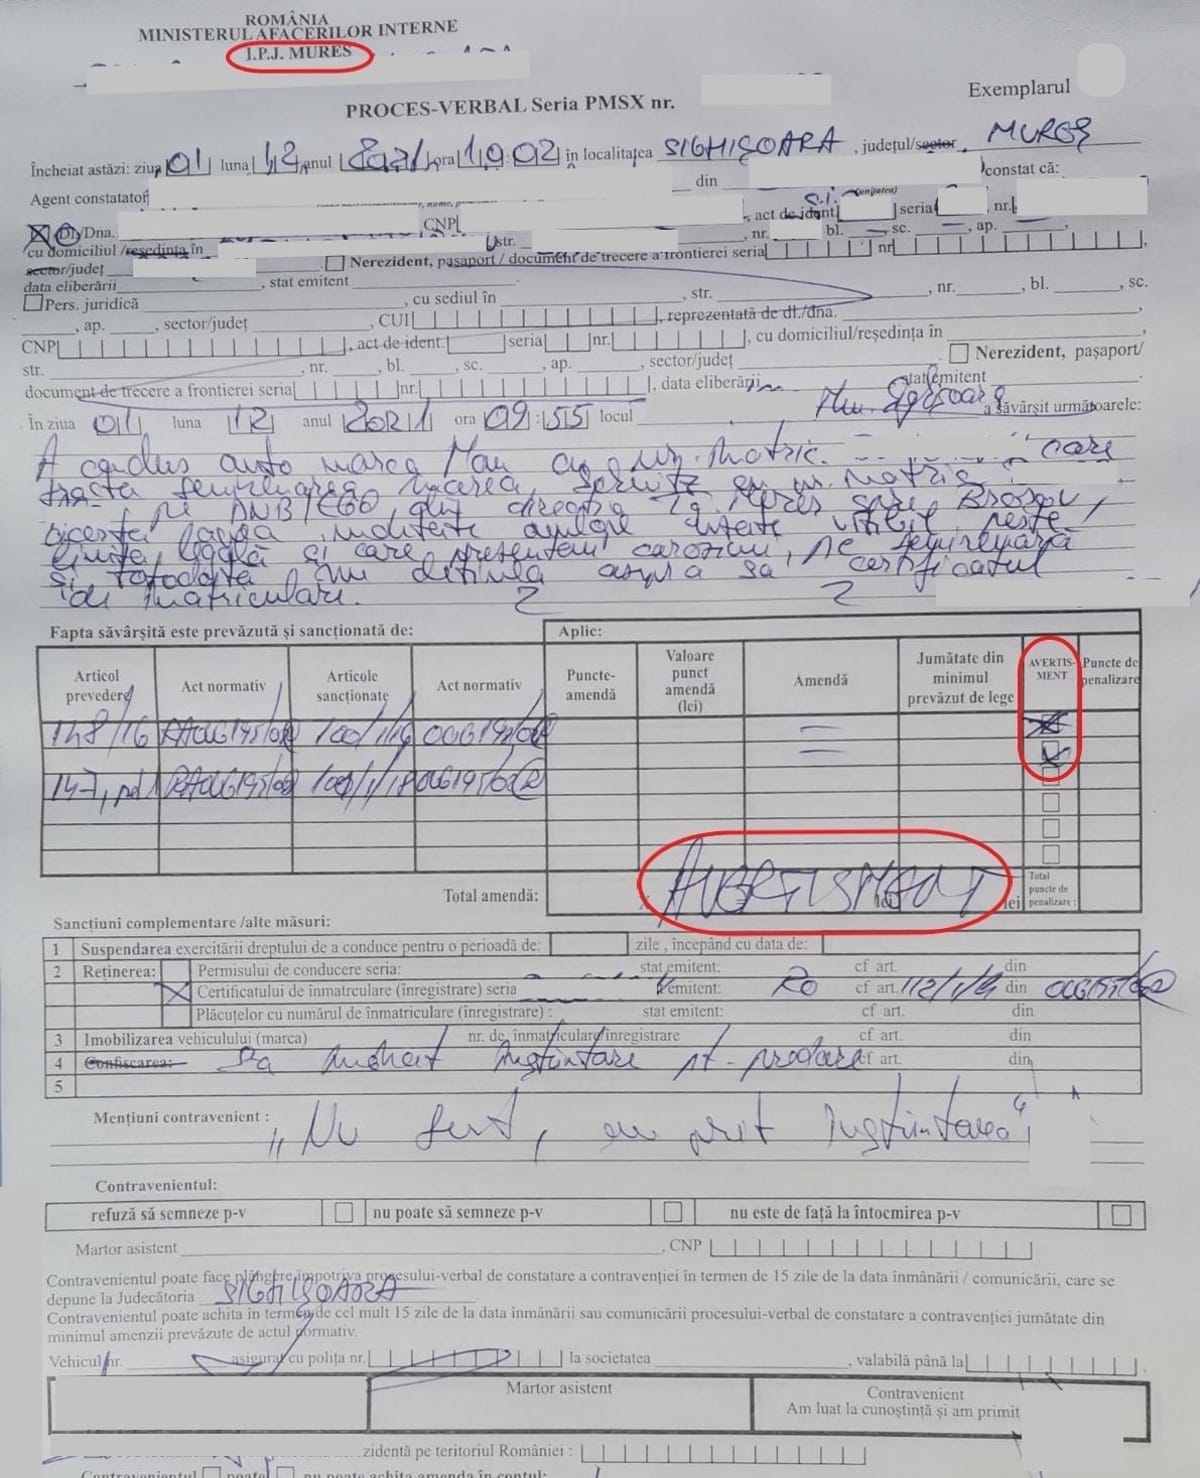 ROMÂNIA
MINISTERUL AFACERILOR INTERNE
I.P.J. MUREȘ
Exemplarul
PROCES-VERBAL Seria PMSX nr.
Încheiat astăzi: ziua 01 luna 12 anul 2021 ora 10:02 în localitatea SIGHIȘOARA, județul/sector MUREȘ
Agent constatator din constat că:
(unitatea)
Dl/Dna. CNP , act de ident. seria , nr.
cu domiciliul /reședința în str. nr. bl. sc. , ap.
sector/județ Nerezident, pașaport / document de trecere a frontierei seria nr
data eliberării , stat emitent
Pers. juridică , cu sediul în , str. , nr. , bl. , sc.
, ap. , sector/județ , CUI , reprezentată de dl./dna.
CNP , act de ident: seria nr. , cu domiciliul/reședința în ,
str. , nr. , bl. , sc. , ap. , sector/județ Nerezident, pașaport/
document de trecere a frontierei seria nr. , data eliberării stat emitent
În ziua 01 luna 12 anul 2021 ora 09:55 locul Mun. Sighișoara a săvârșit următoarele:
A condus auto marca Man cu nr. matric. care
tracta semiremorca marca cu nr. matric.
pe DN13/E60, din direcția Mureș spre Brașov,
acesta având
și care pe semiremorcă
și totodată nu deținea asupra sa certificatul
de înmatriculare.
Fapta săvârșită este prevăzută și sancționată de: Aplic:
Articol prevedere Act normativ Articole sancționate Act normativ Puncte-amendă Valoare punct amendă (lei) Amendă Jumătate din minimul prevăzut de lege AVERTIS-MENT Puncte de penalizare
148/16 RAOUG195/02 100/1/14 OUG195/02R
147, pct 1 RAOUG195/02 100/1/18 OUG195/02R
Total amendă: AVERTISMENT lei Total puncte de penalizare :
Sancțiuni complementare /alte măsuri:
1 Suspendarea exercitării dreptului de a conduce pentru o perioadă de: zile , începând cu data de:
2 Reținerea: Permisului de conducere seria: stat emitent: cf art. din
Certificatului de înmatrculare (înregistrare) seria emitent: RO cf art. 112/1/ din OUG195/02R
Plăcuțelor cu numărul de înmatriculare (înregistrare) : stat emitent: cf art. din
3 Imobilizarea vehiculului (marca) nr. de înmatriculare/înregistrare cf art. din
4 Confiscarea: S-a încheiat înștiințare pt. cf art. din
5
Mențiuni contravenient :
„Nu sunt, am primit înștiințarea”
Contravenientul:
refuză să semneze p-v nu poate să semneze p-v nu este de față la întocmirea p-v
Martor asistent , CNP
Contravenientul poate face plângere împotriva procesului-verbal de constatare a contravenției în termen de 15 zile de la data înmânării / comunicării, care se
depune la Judecătoria SIGHIȘOARA
Contravenientul poate achita în termen de cel mult 15 zile de la data înmânării sau comunicării procesului-verbal de constatare a contravenției jumătate din
minimul amenzii prevăzute de actul normativ.
Vehicul nr. asigurat cu polița nr. la societatea , valabilă până la
Martor asistent Contravenient
Am luat la cunoștință și am primit
zidentă pe teritoriul României :
Contravenientul poate nu poate achita amenda în contul: